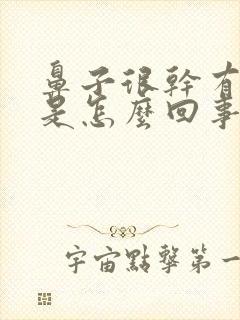 鼻子很幹有
是怎麼回事
宇宙點擊第一